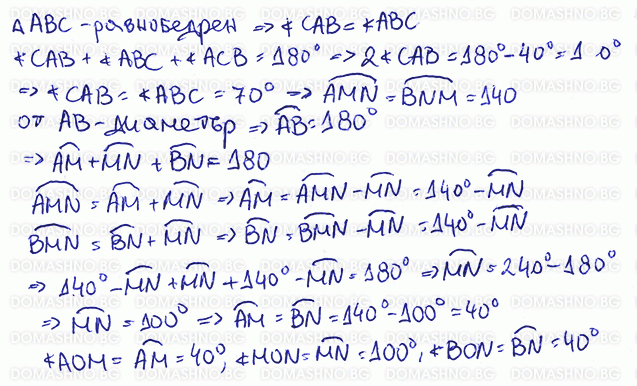 Δ ABC - равнобедрен => ∢ CAB = ∢ABC
∢CAB + ∢ABC + ∢ACB = 180° => 2∢CAB = 180° - 40° = 1 0°
=> ∢CAB = ∢ABC = 70° => AMN = BNM = 140
от AB - диаметър => AB = 180°
=> AM + MN + BN = 180
AMN = AM + MN => AM = AMN - MN = 140° - MN
BMN = BN + MN => BN = BMN - MN = 140° - MN
=> 140° - MN + MN + 140° - MN = 180° => MN = 240° - 180°
=> MN = 100° => AM = BN = 140° - 100° = 40°
∢AOM = AM = 40°, ∢MON = MN = 100°, ∢BON = BN = 40°